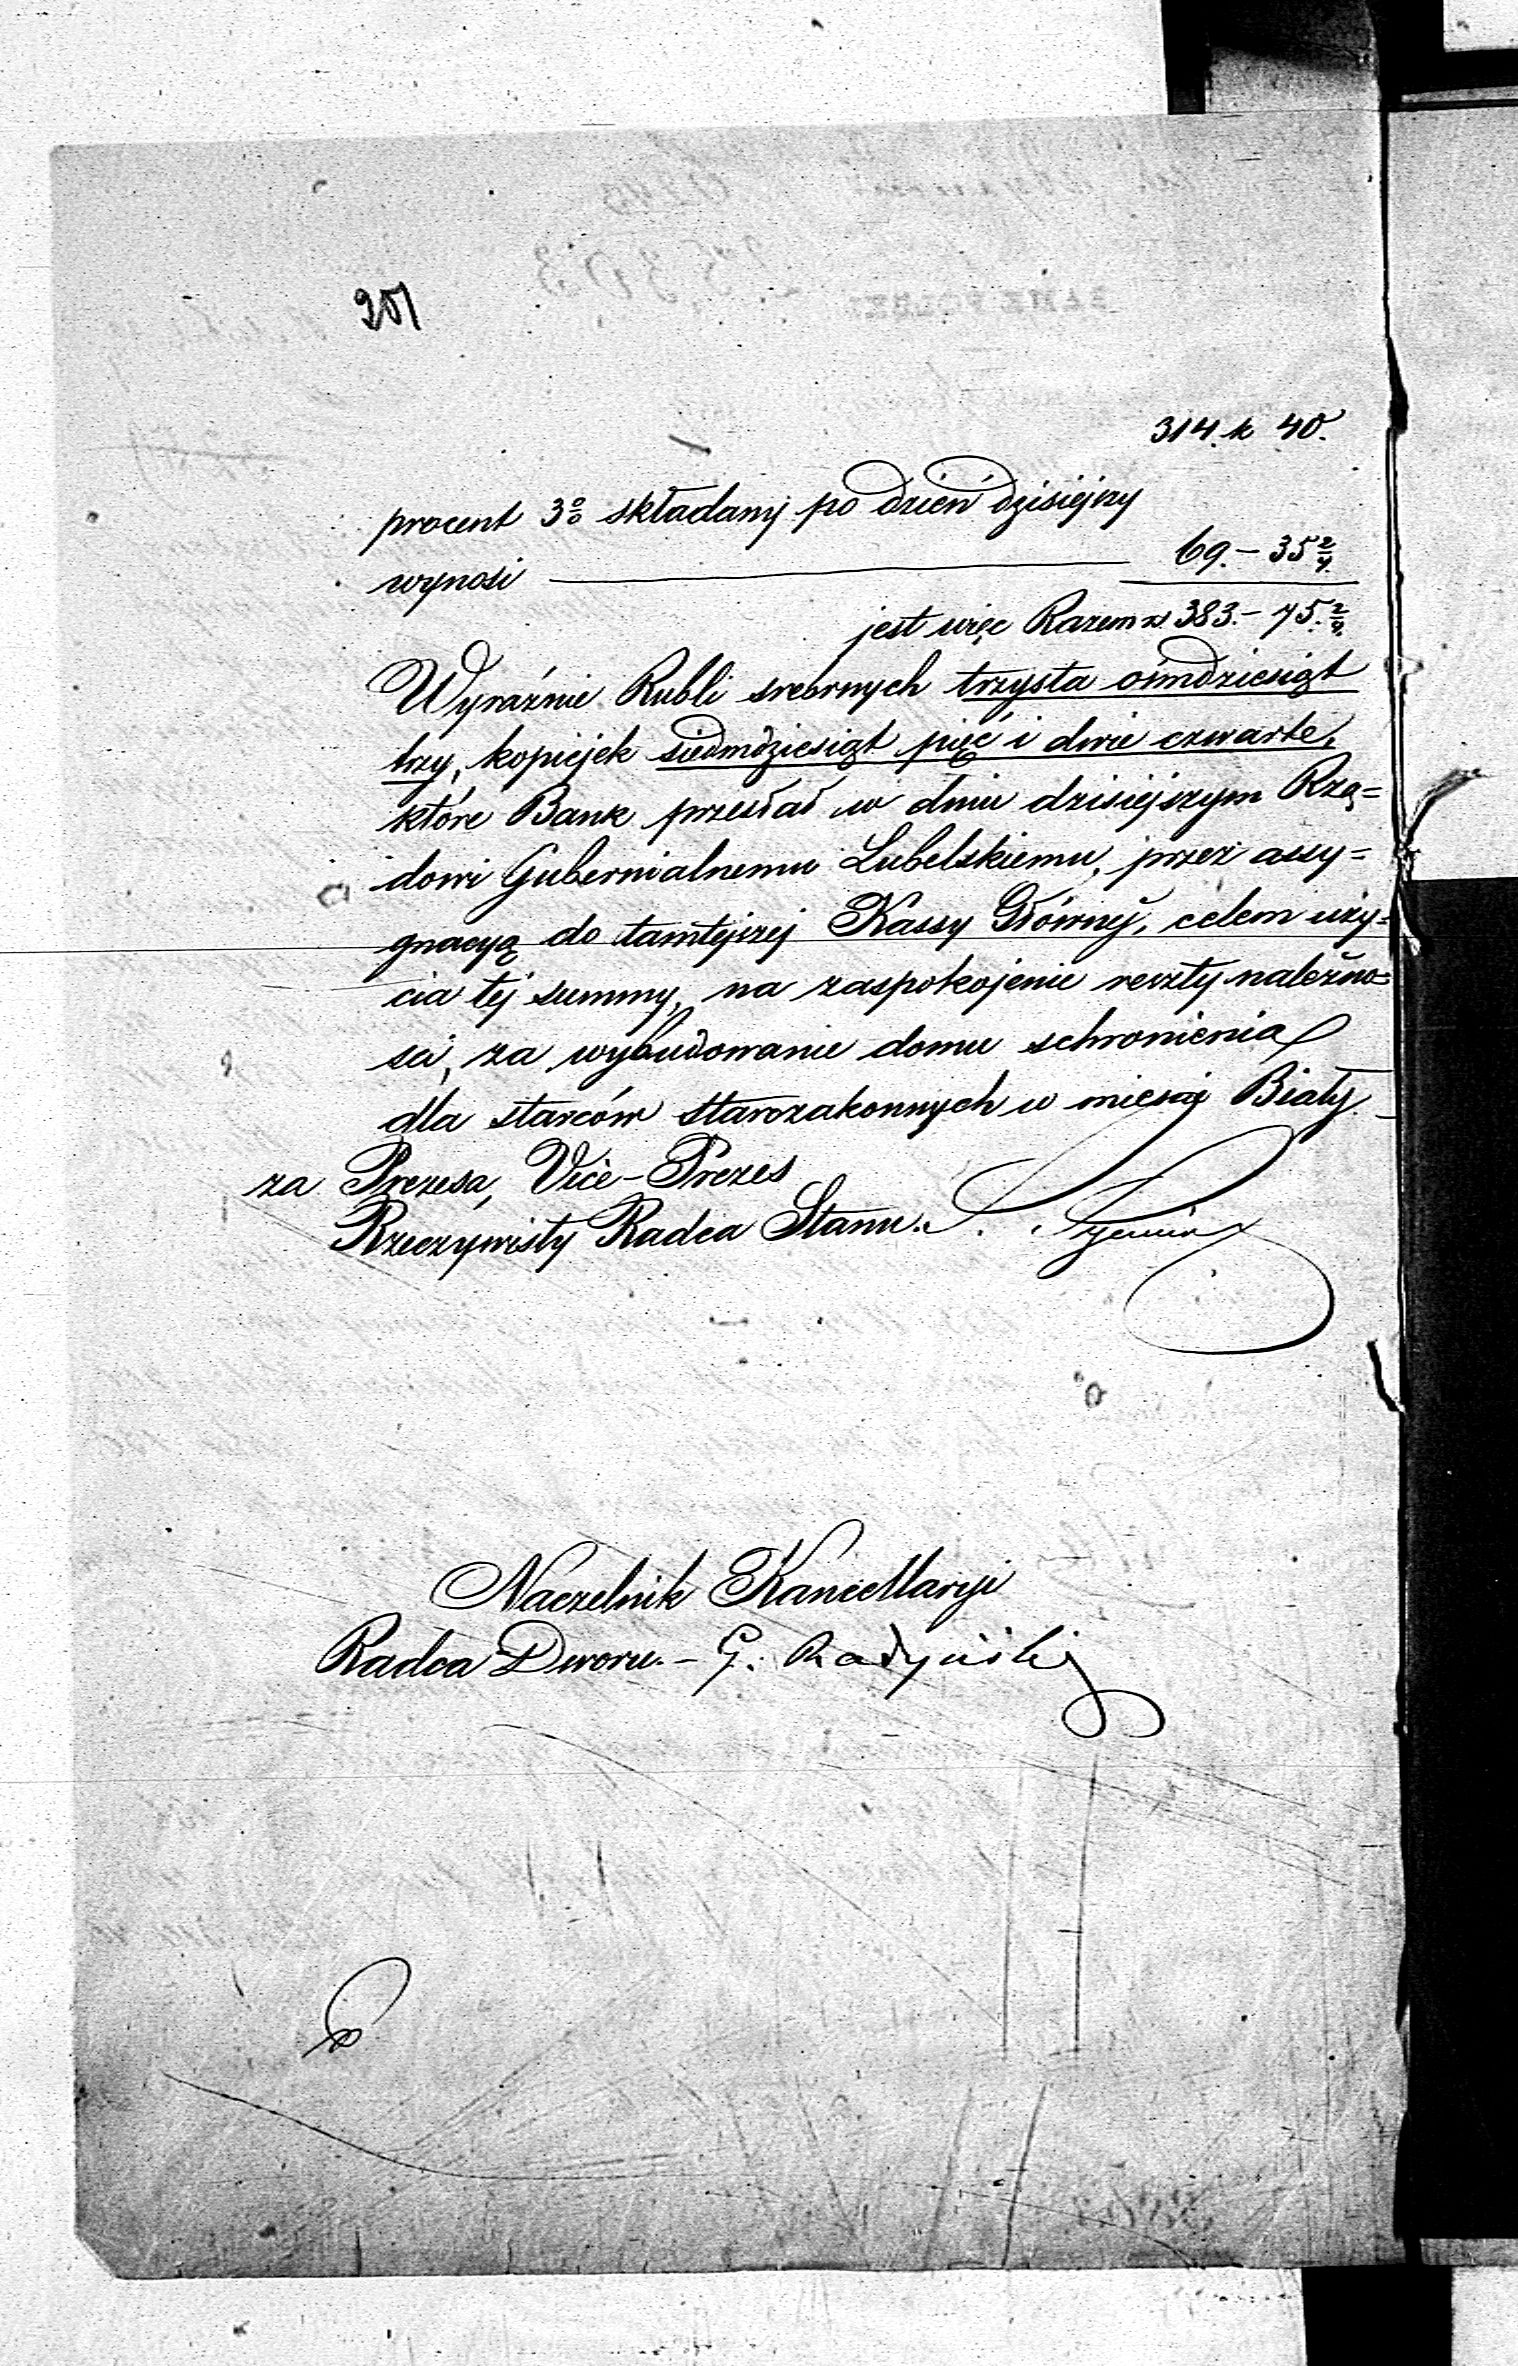 201
314. k 40.
procent 3% składany po dzień dzisiejszy
wynosi 69.- 35 2/4.
jest więc Razem 383.- 75. 2/4.
Wyraźnie Rubli srebrnych trzysta ośmdziesiąt
trzy, kopiejek siedmdziesiąt pięć i dwie czwarte,
które Bank przesłał w dniu dzisiejszym Rzą=
dowi Gubernialnemu Lubelskiemu, przez assy=
gnacyą do tamtejszej Kassy Głównej, celem uży=
cia tej summy, na zaspokojenie reszty należno=
ści, za wybudowanie domu schronienia
dla starców starozakonnych w mieście Biały.
za Prezesa, Vice-Prezes
Rzeczywisty Radca Stanu.
Naczelnik Kancellaryi
Radca Dworu. - G.